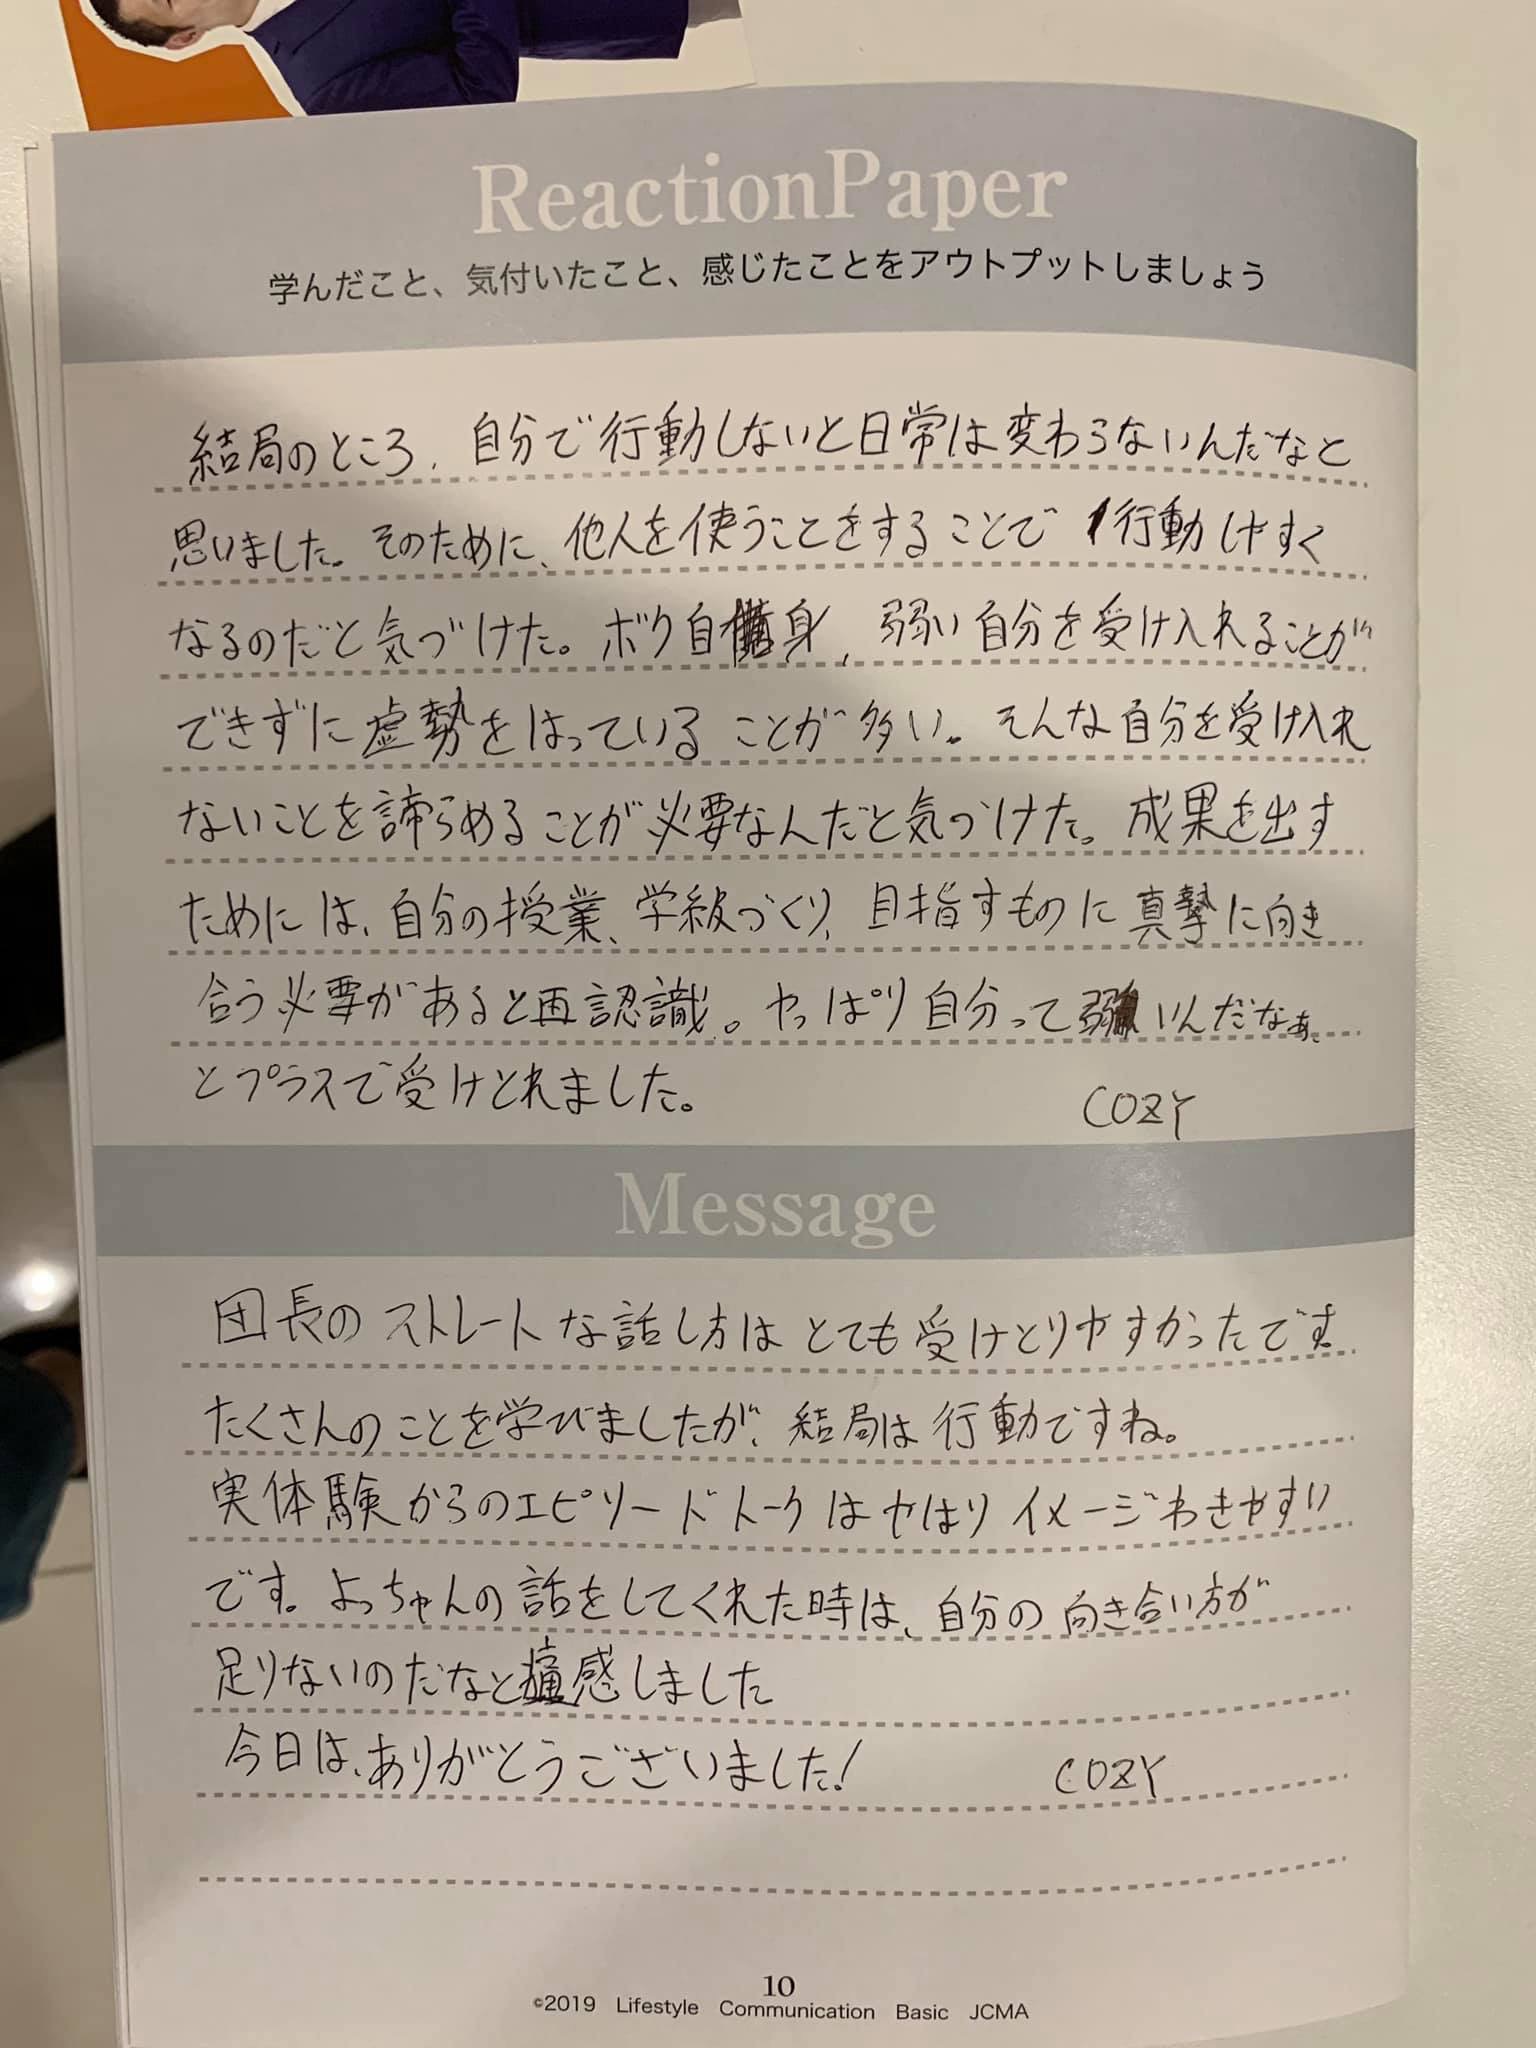 ReactionPaper
学んだこと、気付いたこと、感じたことをアウトプットしましょう
結局のところ、自分で行動しないと日常は変わらないんだなと
思いました。そのために、他人を使うことをすることで行動しやすく
なるのだと気づけた。ボク自身、弱い自分を受け入れることが
できずに虚勢をはっていることが多い。そんな自分を受け入れ
ないことを諦らめることが必要なんだと気づけた。成果を出す
ためには、自分の授業、学級づくり、目指すものに真摯に向き
合う必要があると再認識。やっぱり自分って弱いんだなぁ、
とプラスで受けとれました。
COZY
Message
団長のストレートな話し方はとても受けとりやすかったです。
たくさんのことを学びましたが、結局は行動ですね。
実体験からのエピソードトークはやはりイメージわきやすい
です。よっちゃんの話をしてくれた時は、自分の向き合い方が
足りないのだなと痛感しました
今日は、ありがとうございました!
COZY
10
©2019 Lifestyle Communication Basic JCMA